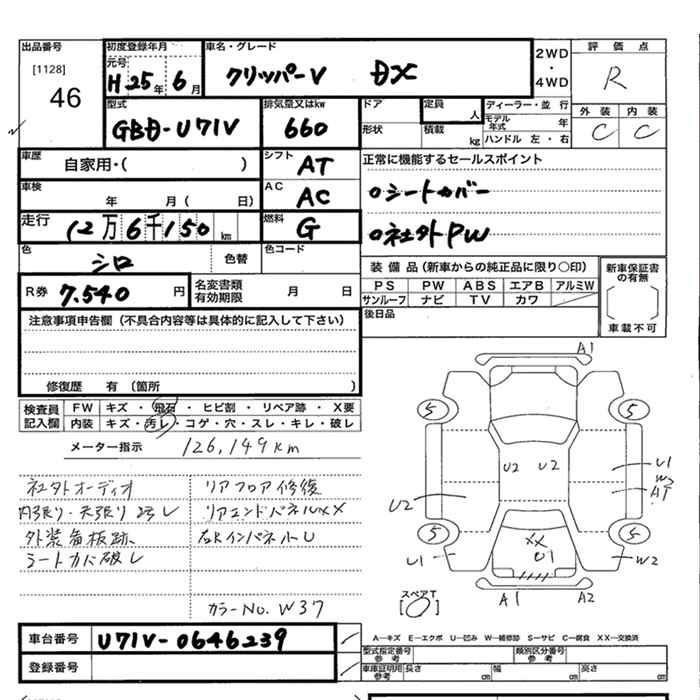 出品番号
[1128]
46
初度登録年月
元号
H25年6月
車名・グレード
クリッパーV DX
2WD
・
4WD
評価点
R
外装 内装
C C
型式
GBD-U71V
排気量又はkw
660
ドア
形状
定員
人
積載
kg
ディーラー・並行
モデル年式
年
ハンドル 左・右
車歴
自家用・( )
シフト
AT
正常に機能するセールスポイント
○シートカバー
○社外PW
車検
年 月( 日)
AC
AC
走行
12万6千150km
燃料
G
色
シロ
色替
色コード
装備品(新車からの純正品に限り○印)
PS PW ABS エアB アルミW
サンルーフ ナビ TV カワ
新車保証書の有無
車載不可
R券 7.540円
名変書類有効期限
月 日
後日品
注意事項申告欄(不具合内容等は具体的に記入して下さい)
修復歴 有(箇所 )
検査員記入欄
FW キズ・飛石・ヒビ割・リペア跡・X要
内装 キズ・汚レ・コゲ・穴・スレ・キレ・破レ
メーター指示 126,149km
社外オーディオ
内張り・天張り
外装看板跡
シートカバ破レ
リアフロア修復
リアエンドパネルXX
右Rインパネ凹U
カラーNo. W37
A1
S S
U2 U2
U1
W3
A1
U2
S S
XX
U1
U1 W2
スペアT
A1 A2
A―キズ E―エクボ U―凹み W―補修跡 S―サビ C―腐食 XX―交換済
車台番号 U71V-0646239
登録番号
型式指定番号
参考
類別区分番号
参考
車庫証明用
参考
長さ cm 幅 cm 高さ cm